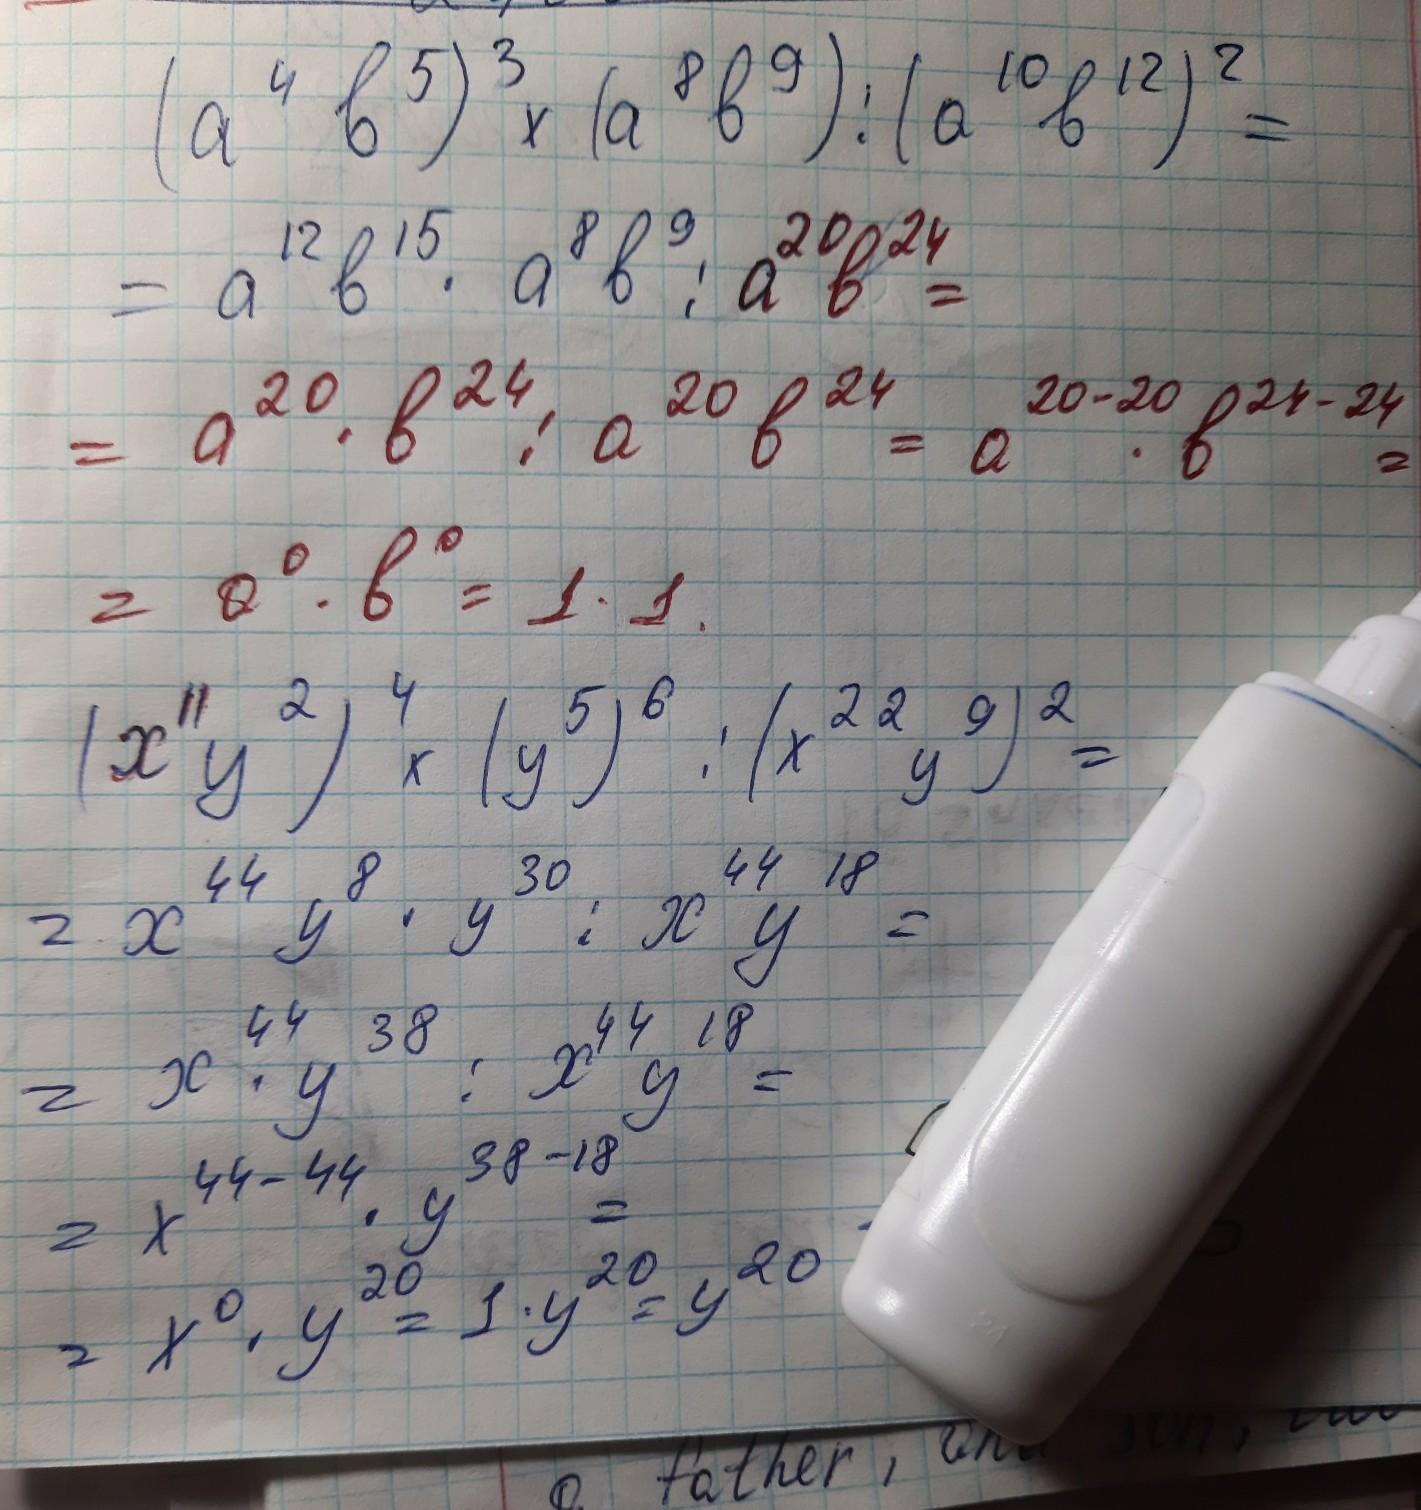 (a⁴ b⁵)³ × (a⁸b⁹) : (a¹⁰b¹²)² =
= a¹²b¹⁵ · a⁸b⁹ : a²⁰b²⁴ =
= a²⁰ · b²⁴ : a²⁰ b²⁴ = a²⁰⁻²⁰ · b²⁴⁻²⁴ =
= a⁰ · b⁰ = 1 · 1.
(x¹¹y²)⁴ × (y⁵)⁶ : (x²²y⁹)² =
= x⁴⁴ y⁸ · y³⁰ : x⁴⁴ y¹⁸ =
= x⁴⁴ · y³⁸ : x⁴⁴ y¹⁸ =
= x⁴⁴⁻⁴⁴ · y³⁸⁻¹⁸ =
= x⁰ · y²⁰ = 1 · y²⁰ = y²⁰
a father, and